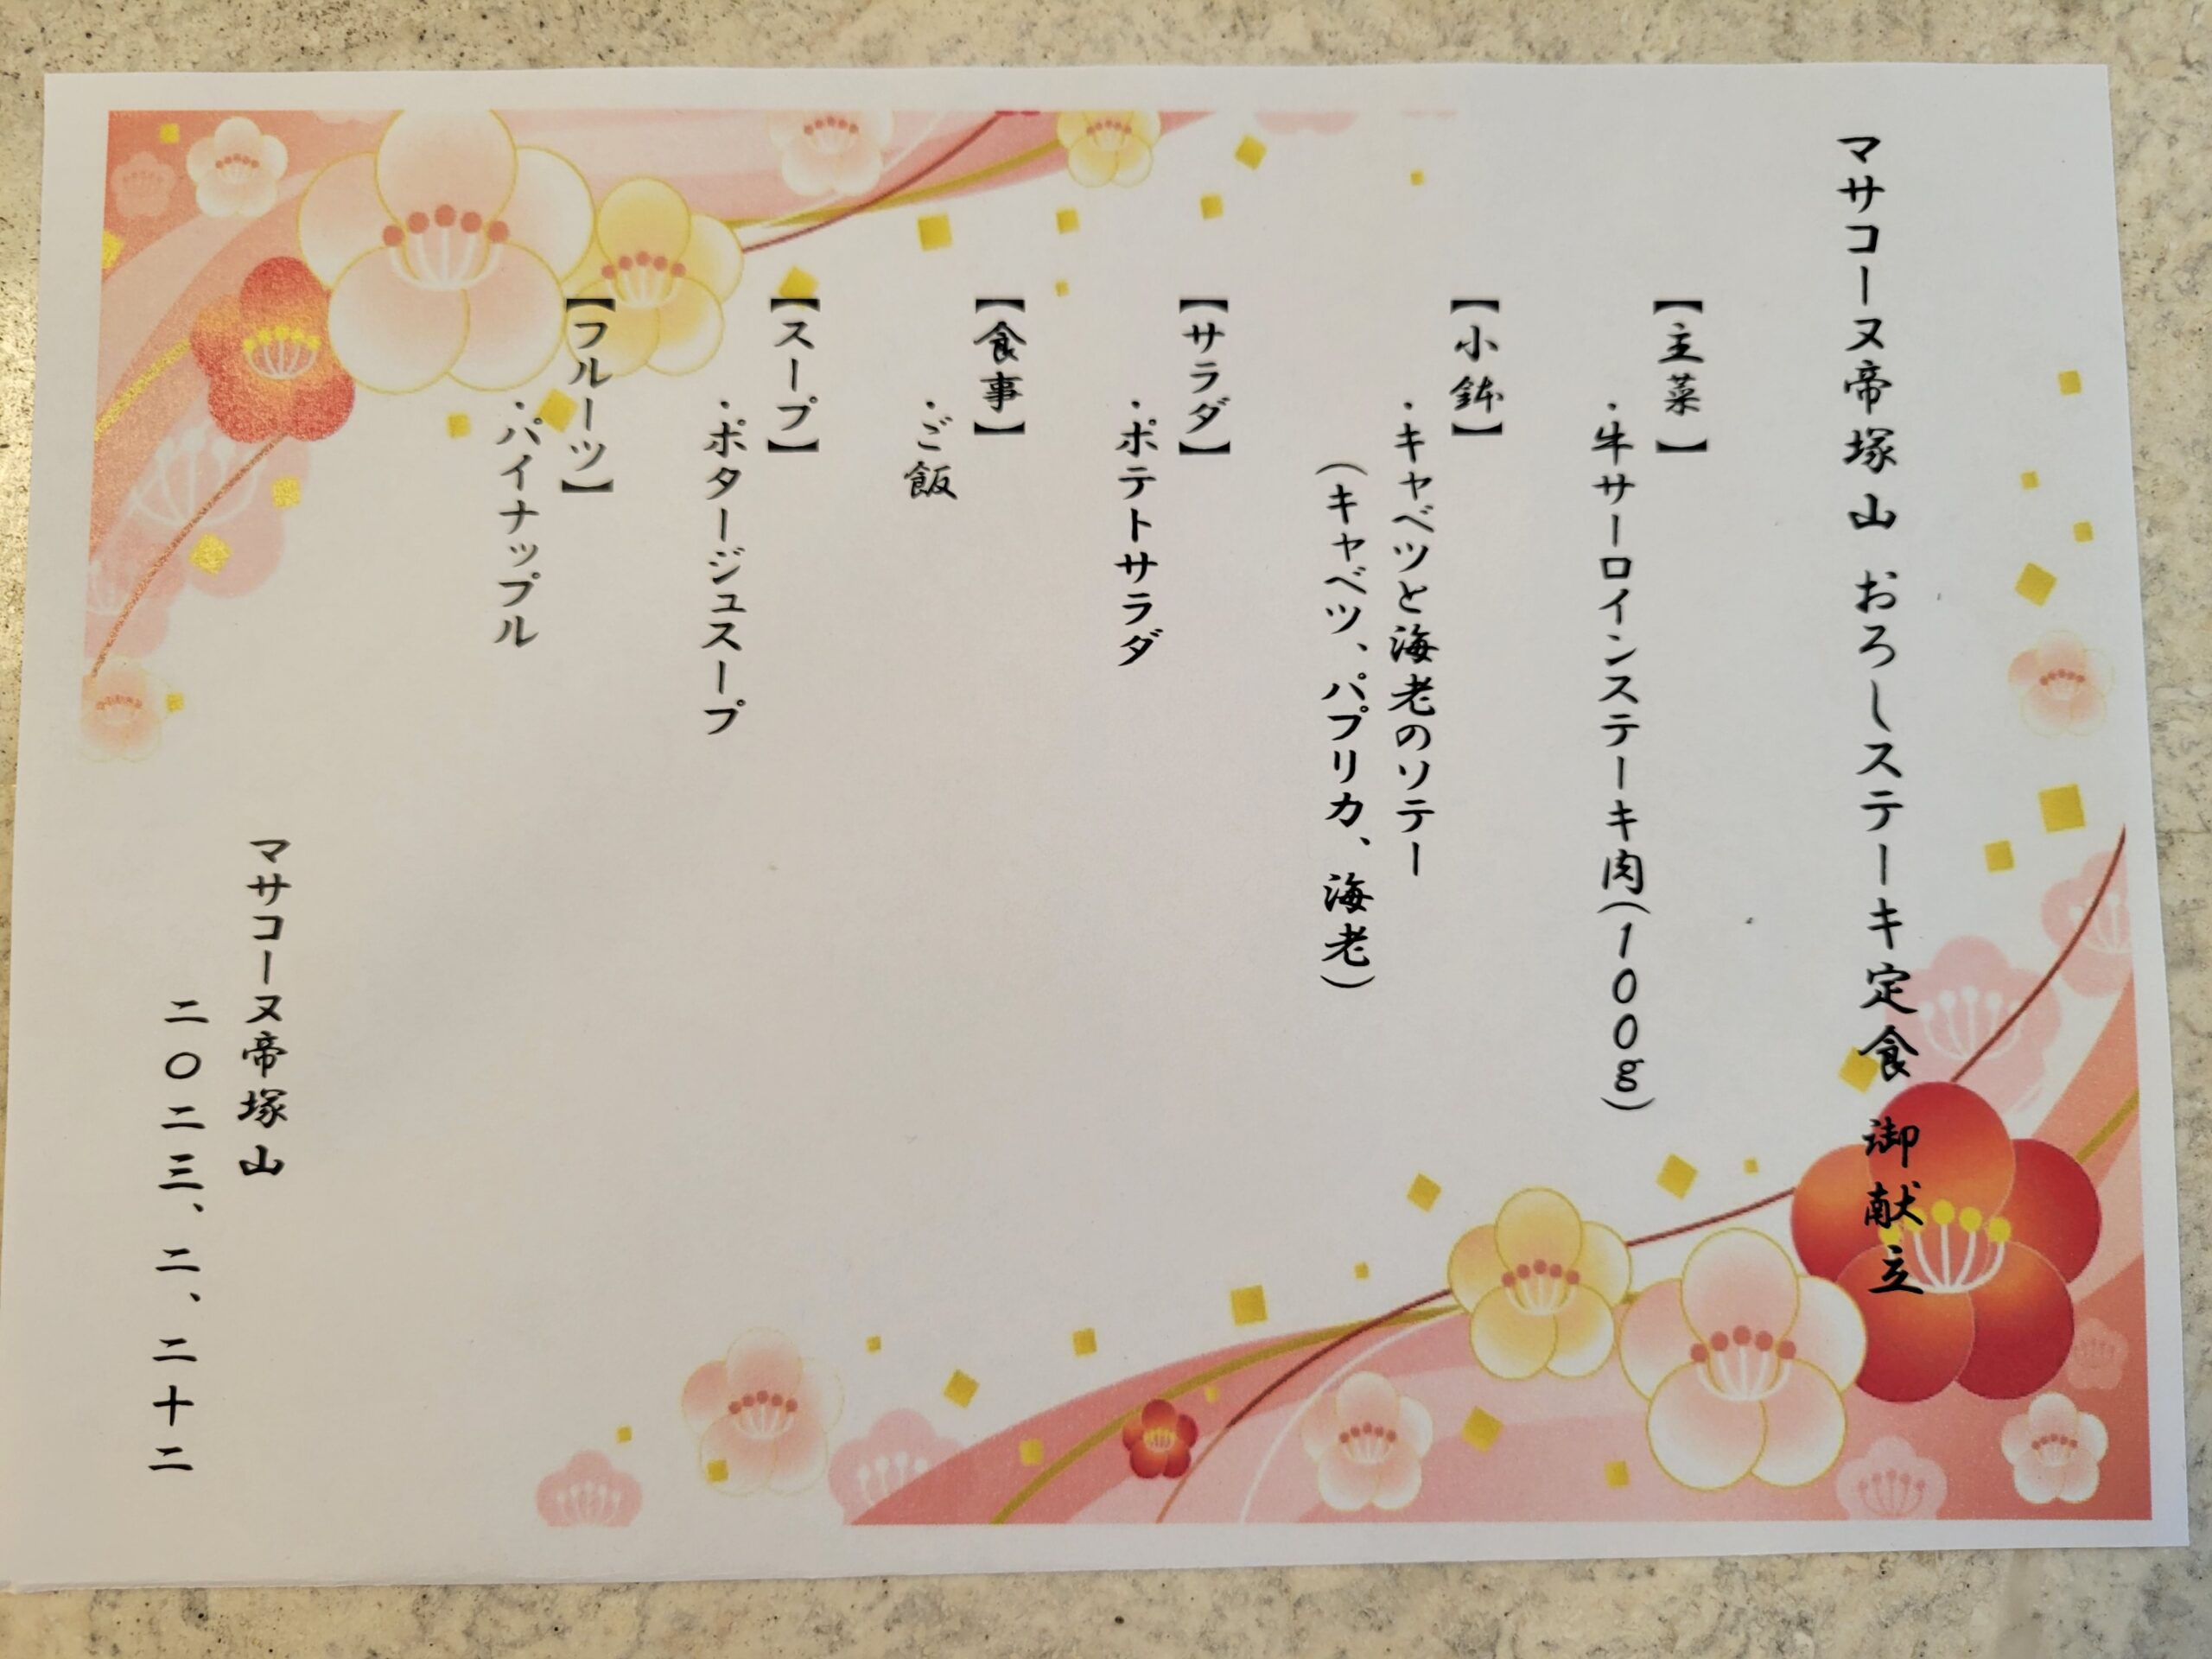 マサコーヌ帝塚山 おろしステーキ定食 御献立
【主菜】
・牛サーロインステーキ肉(100g)
【小鉢】
・キャベツと海老のソテー
(キャベツ、パプリカ、海老)
【サラダ】
・ポテトサラダ
【食事】
・ご飯
【スープ】
・ポタージュスープ
【フルーツ】
・パイナップル
マサコーヌ帝塚山
二〇二三、二、二十二